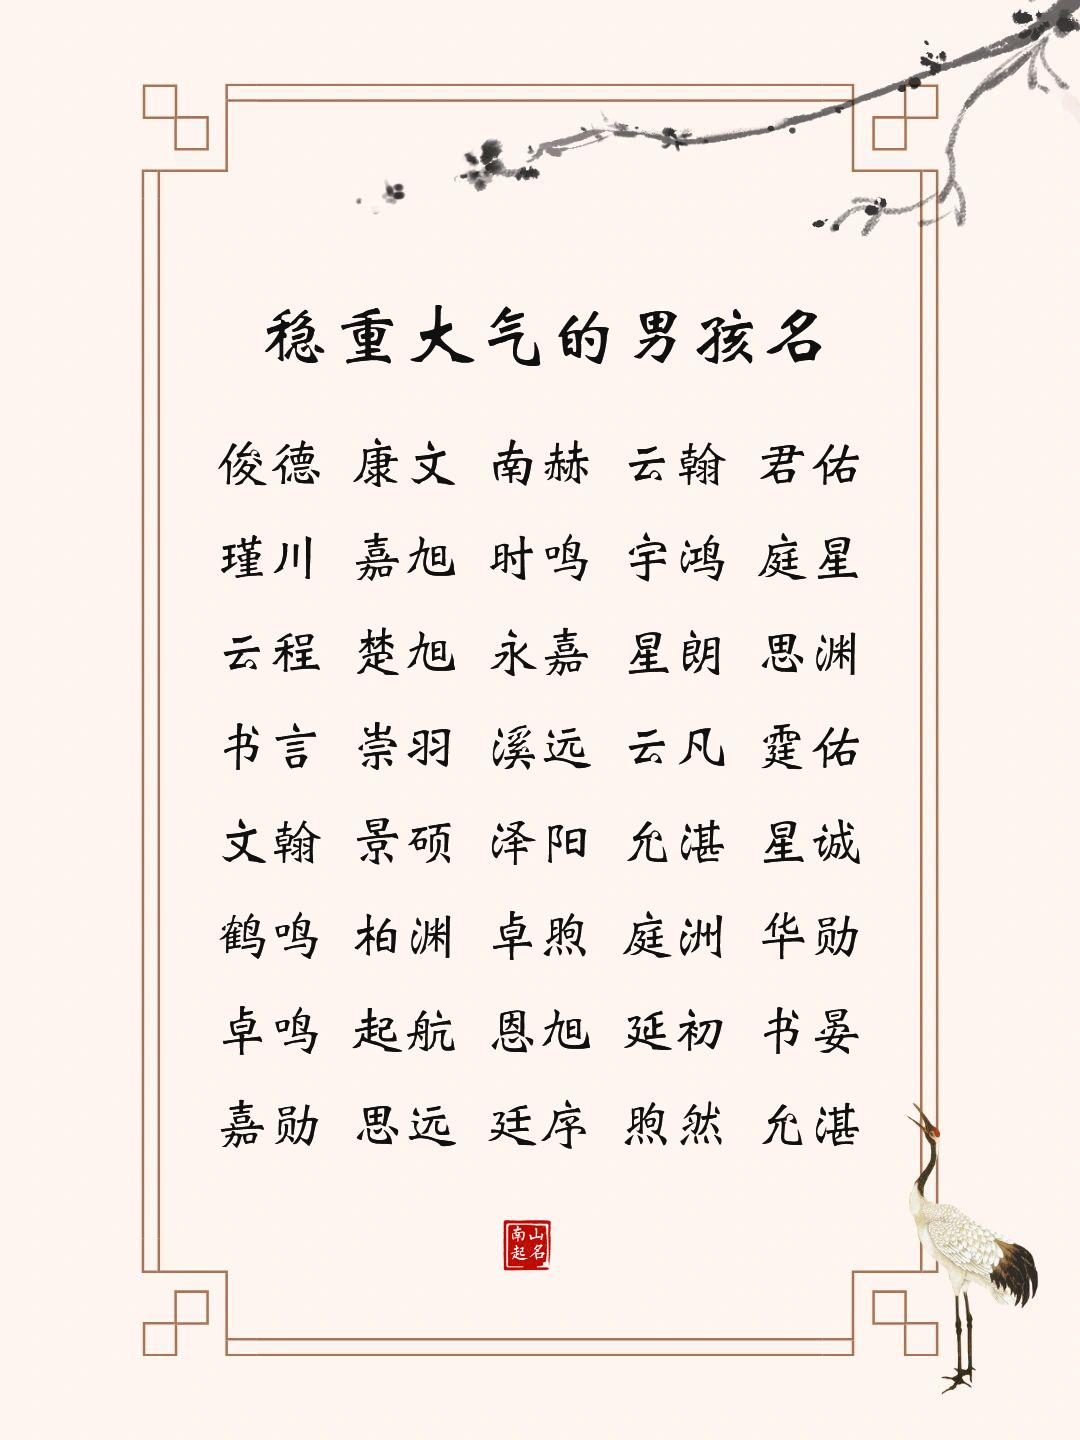 稳重大气的男孩名
俊德 康文 南赫 云翰 君佑
瑾川 嘉旭 时鸣 宇鸿 庭星
云程 楚旭 永嘉 星朗 思渊
书言 崇羽 溪远 云凡 霆佑
文翰 景硕 泽阳 允湛 星诚
鹤鸣 柏渊 卓煦 庭洲 华勋
卓鸣 起航 恩旭 延初 书晏
嘉勋 思远 廷序 煦然 允湛
南山
起名